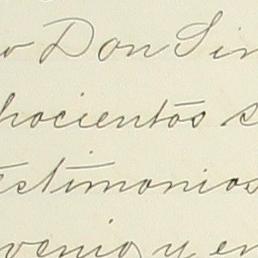 o Don Sin
hocientos s
testimonios
venio y en